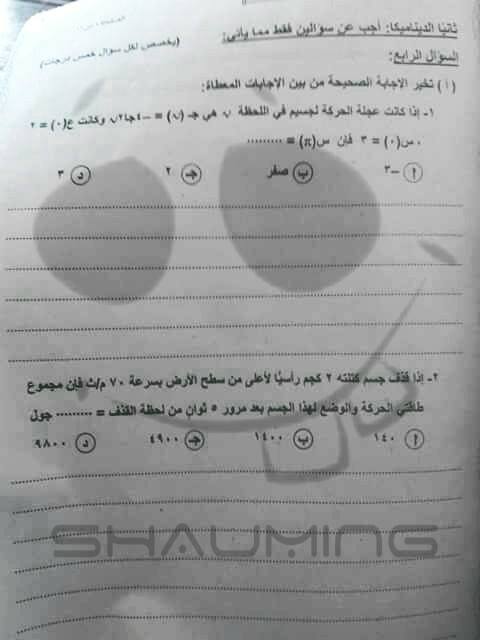 ثانيًا الديناميكا: أجب عن سؤالين فقط مما يأتي:
(يخصص لكل سؤال خمس درجات)
السؤال الرابع:
(أ) تخير الإجابة الصحيحة من بين الإجابات المعطاة:
١- إذا كانت عجلة الحركة لجسيم في اللحظة ن هي جـ (ن) = -٤جا٢ن وكانت ع(٠) = ٢
، س(٠) = ٣ فإن س(π) = .........
أ -٣ ب صفر جـ ٢ د ٣
٢- إذا قذف جسم كتلته ٢ كجم رأسيًا لأعلى من سطح الأرض بسرعة ٧٠ م/ث فإن مجموع
طاقتي الحركة والوضع لهذا الجسم بعد مرور ٥ ثوانٍ من لحظة القذف = ......... جول
أ ١٤٠ ب ١٤٠٠ جـ ٤٩٠٠ د ٩٨٠٠
SHAUMING